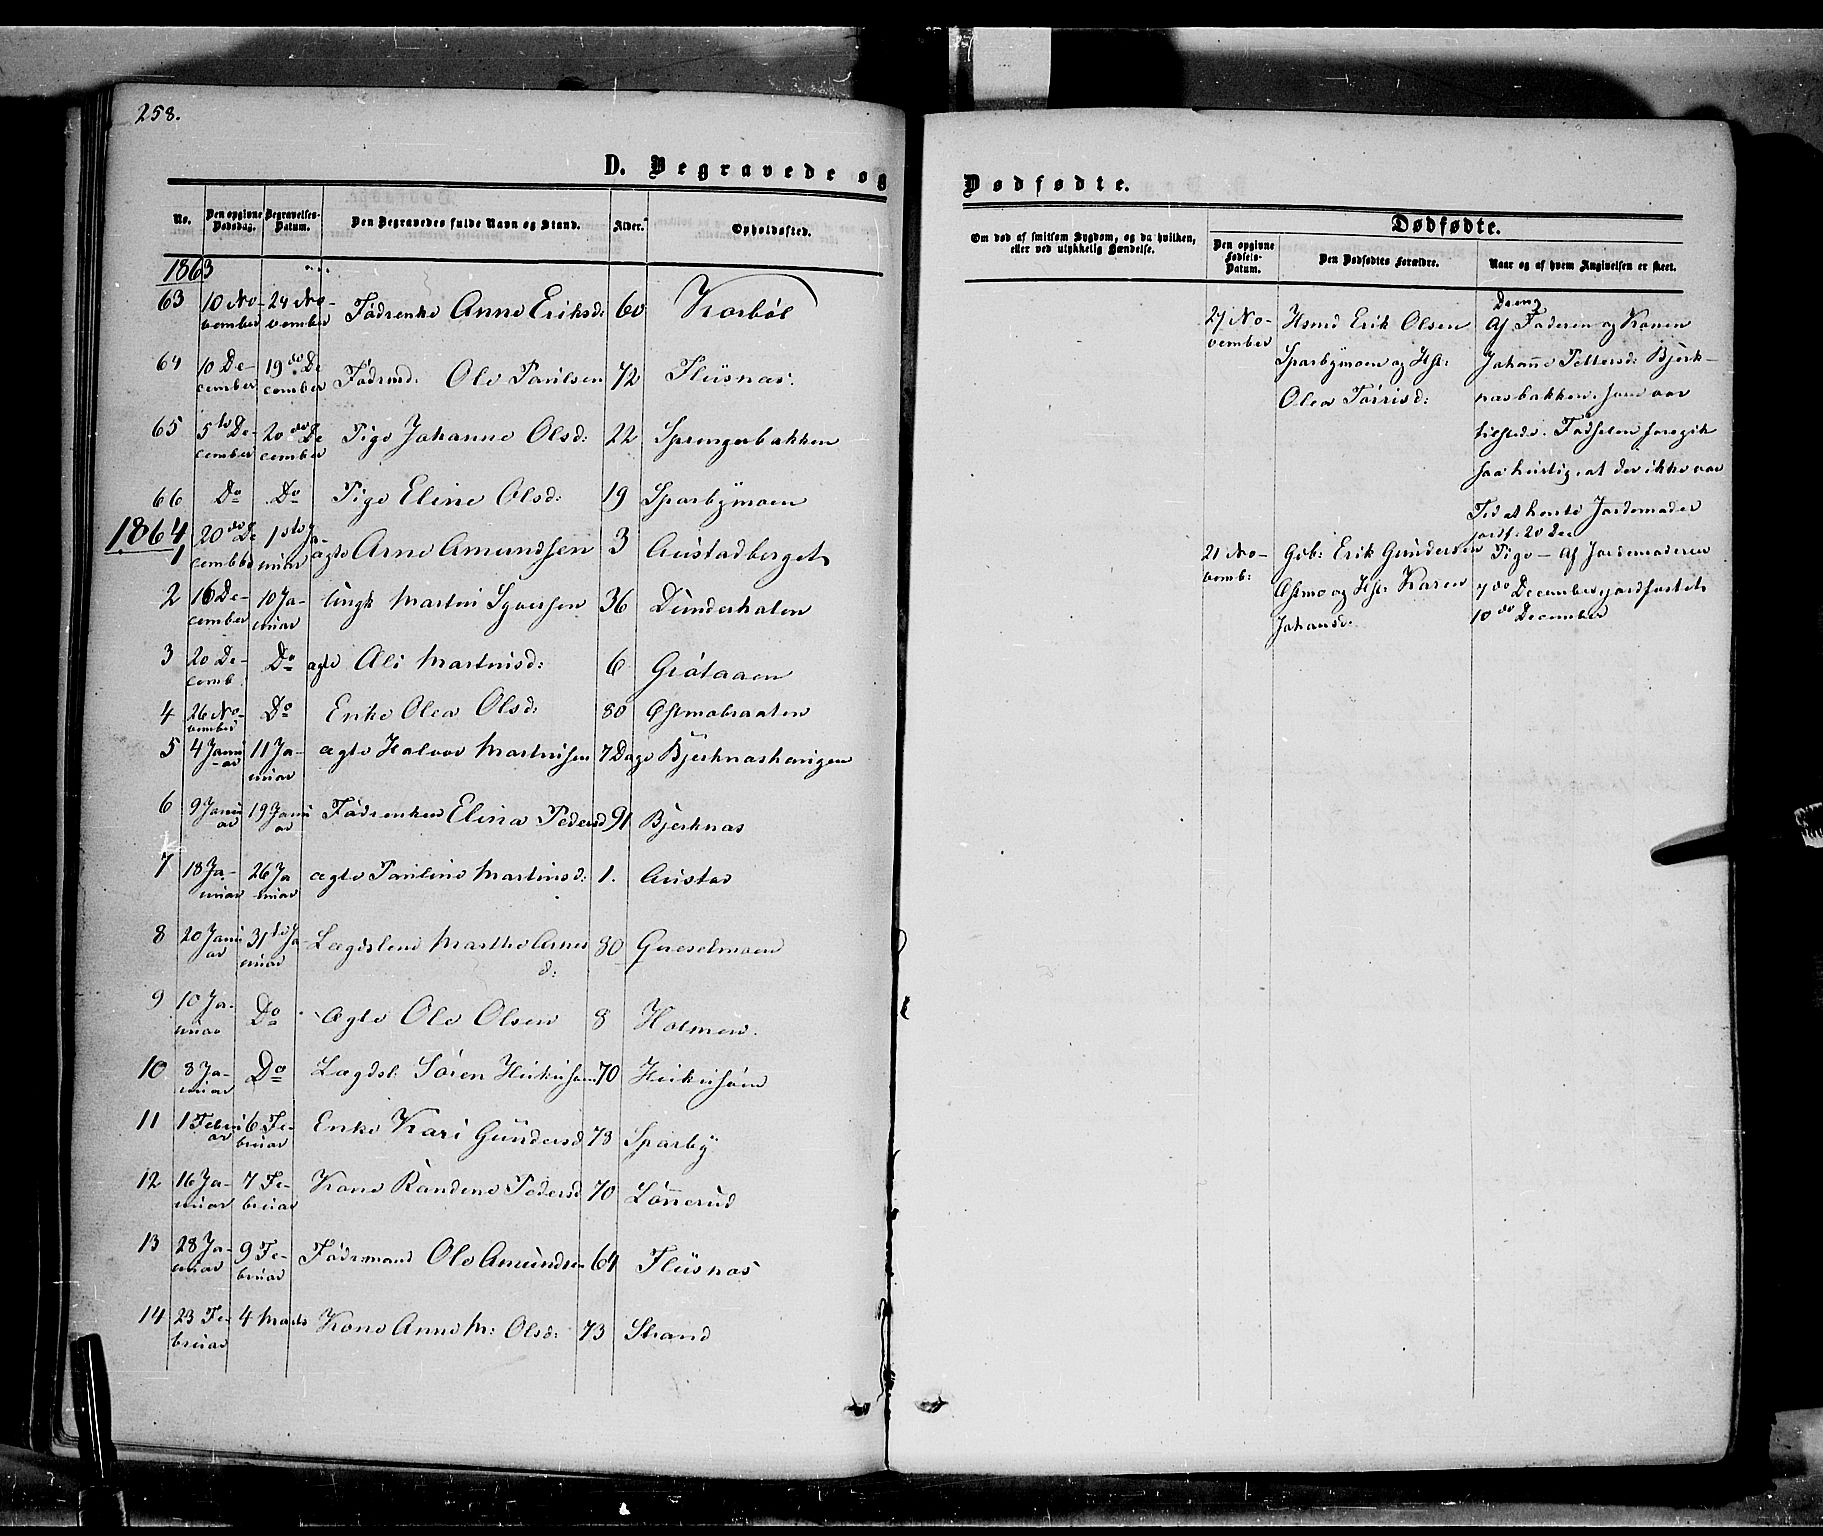 258.
D. Begravede og
No. Den opgivne Dødsdag. Begravelses-Datum. Den Begravedes fulde Navn og Stand. Alder. Opholdssted.
1863
63 10 November 24 November Fødrenke Anne Eriksd: 60 Korbøl
64 10 December 19de December Fødrmd: Ole Paulsen 72 Flusnas.
65 5te December 20de December Pige Johanne Olsd: 22 Sprengerbakken
66 Do Do Pige Eline Olsd: 19 Sparbymoen
1864
1 20de December 1ste Januar ægte Arne Amundsen 3 Austadberget
2 16 December 10 Januar Ungk Martin Syversen 36 Dunderhaten
3 20 Decemb. Do ægte Ali Martinsd: 6 Grøtaaen
4 26 November Do Enke Olea Olsd: 80 Østmobraaten
5 4 Januar 11 Januar ægte Halvor Martinsen 7 Dage Bjerknashaugen
6 9 Januar 19 Januar Fødrenken Elina Pedersd 91 Bjerknas
7 18 Januar 26 Januar ægte Pauline Martinsd: 1. Austad
8 20 Januar 31te Januar Lægdslem Marthe Arnesd: 80 Graeselmoen
9 10 Januar Do ægte Ole Olsen 8 Holmen.
10 8 Januar Do Lægdsl: Søren 70
11 1 Februar 6 Februar Enke Kari Gundersd 73 Sparby
12 16 Januar 7 Februar Kone Randine Pedersd 70 Lønnerud
13 28 Januar 9 Februar Fødrmand Ole Amundsen 64 Flusnas
14 23 Februar 4 Marts Kone Anne M: Olsd: 73 Strand
Dødfødte.
Om død af smitsom Sygdom, og da hvilken, eller ved ulykkelig Hændelse.
Dødfødte.
Den opgivne Fødsels-Datum. Den Dødfødtes Forældre. Naar og af hvem Angivelsen er skeet.
27 November Hsmd Erik Olsen Sparbymoen og Hst: Olea Torrisd:
Dreng
Af Faderen og Konen
Johanne Pettersd: Bjerk-
nasbakken, som var
tilstede. Fødselen foregik
saa hurtig, at der ikke var
Tid at hente Jordemoder
jordf: 20 Dec
21 Novemb: Gbr: Erik Gundersen Østmo og Hst: Karen Johansd:
Pige - Af Jordemoderen
7de December jordfæstet
10de December